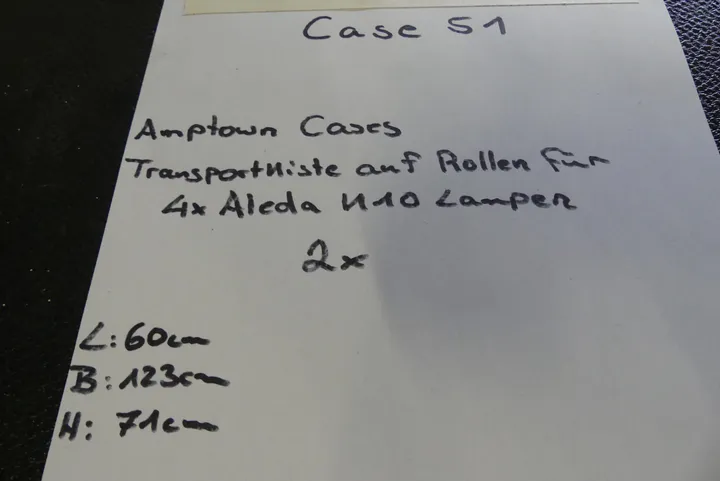 Case 51
Amptown Cases
Transportkiste auf Rollen für
4x Aleda K10 Lampen
2x
L: 60cm
B: 123cm
H: 71cm